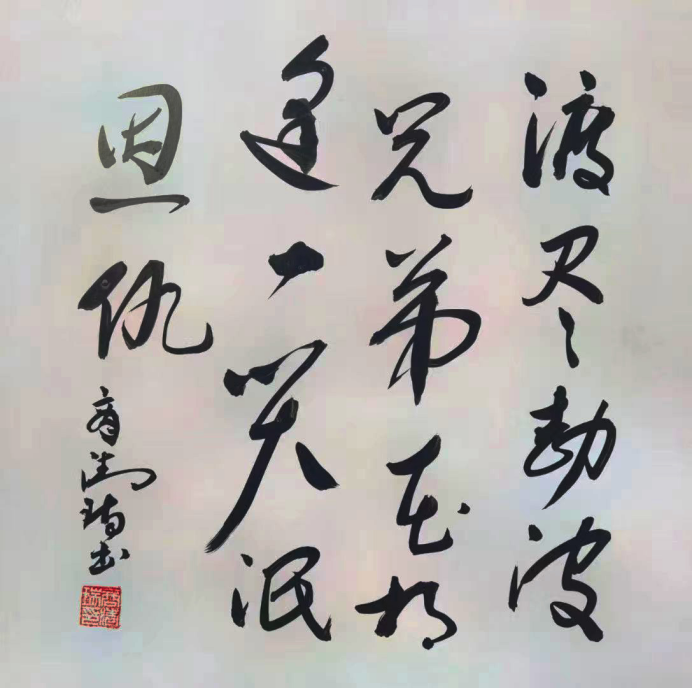 渡尽劫波
兄弟在相
逢一笑泯
恩仇
瑞书